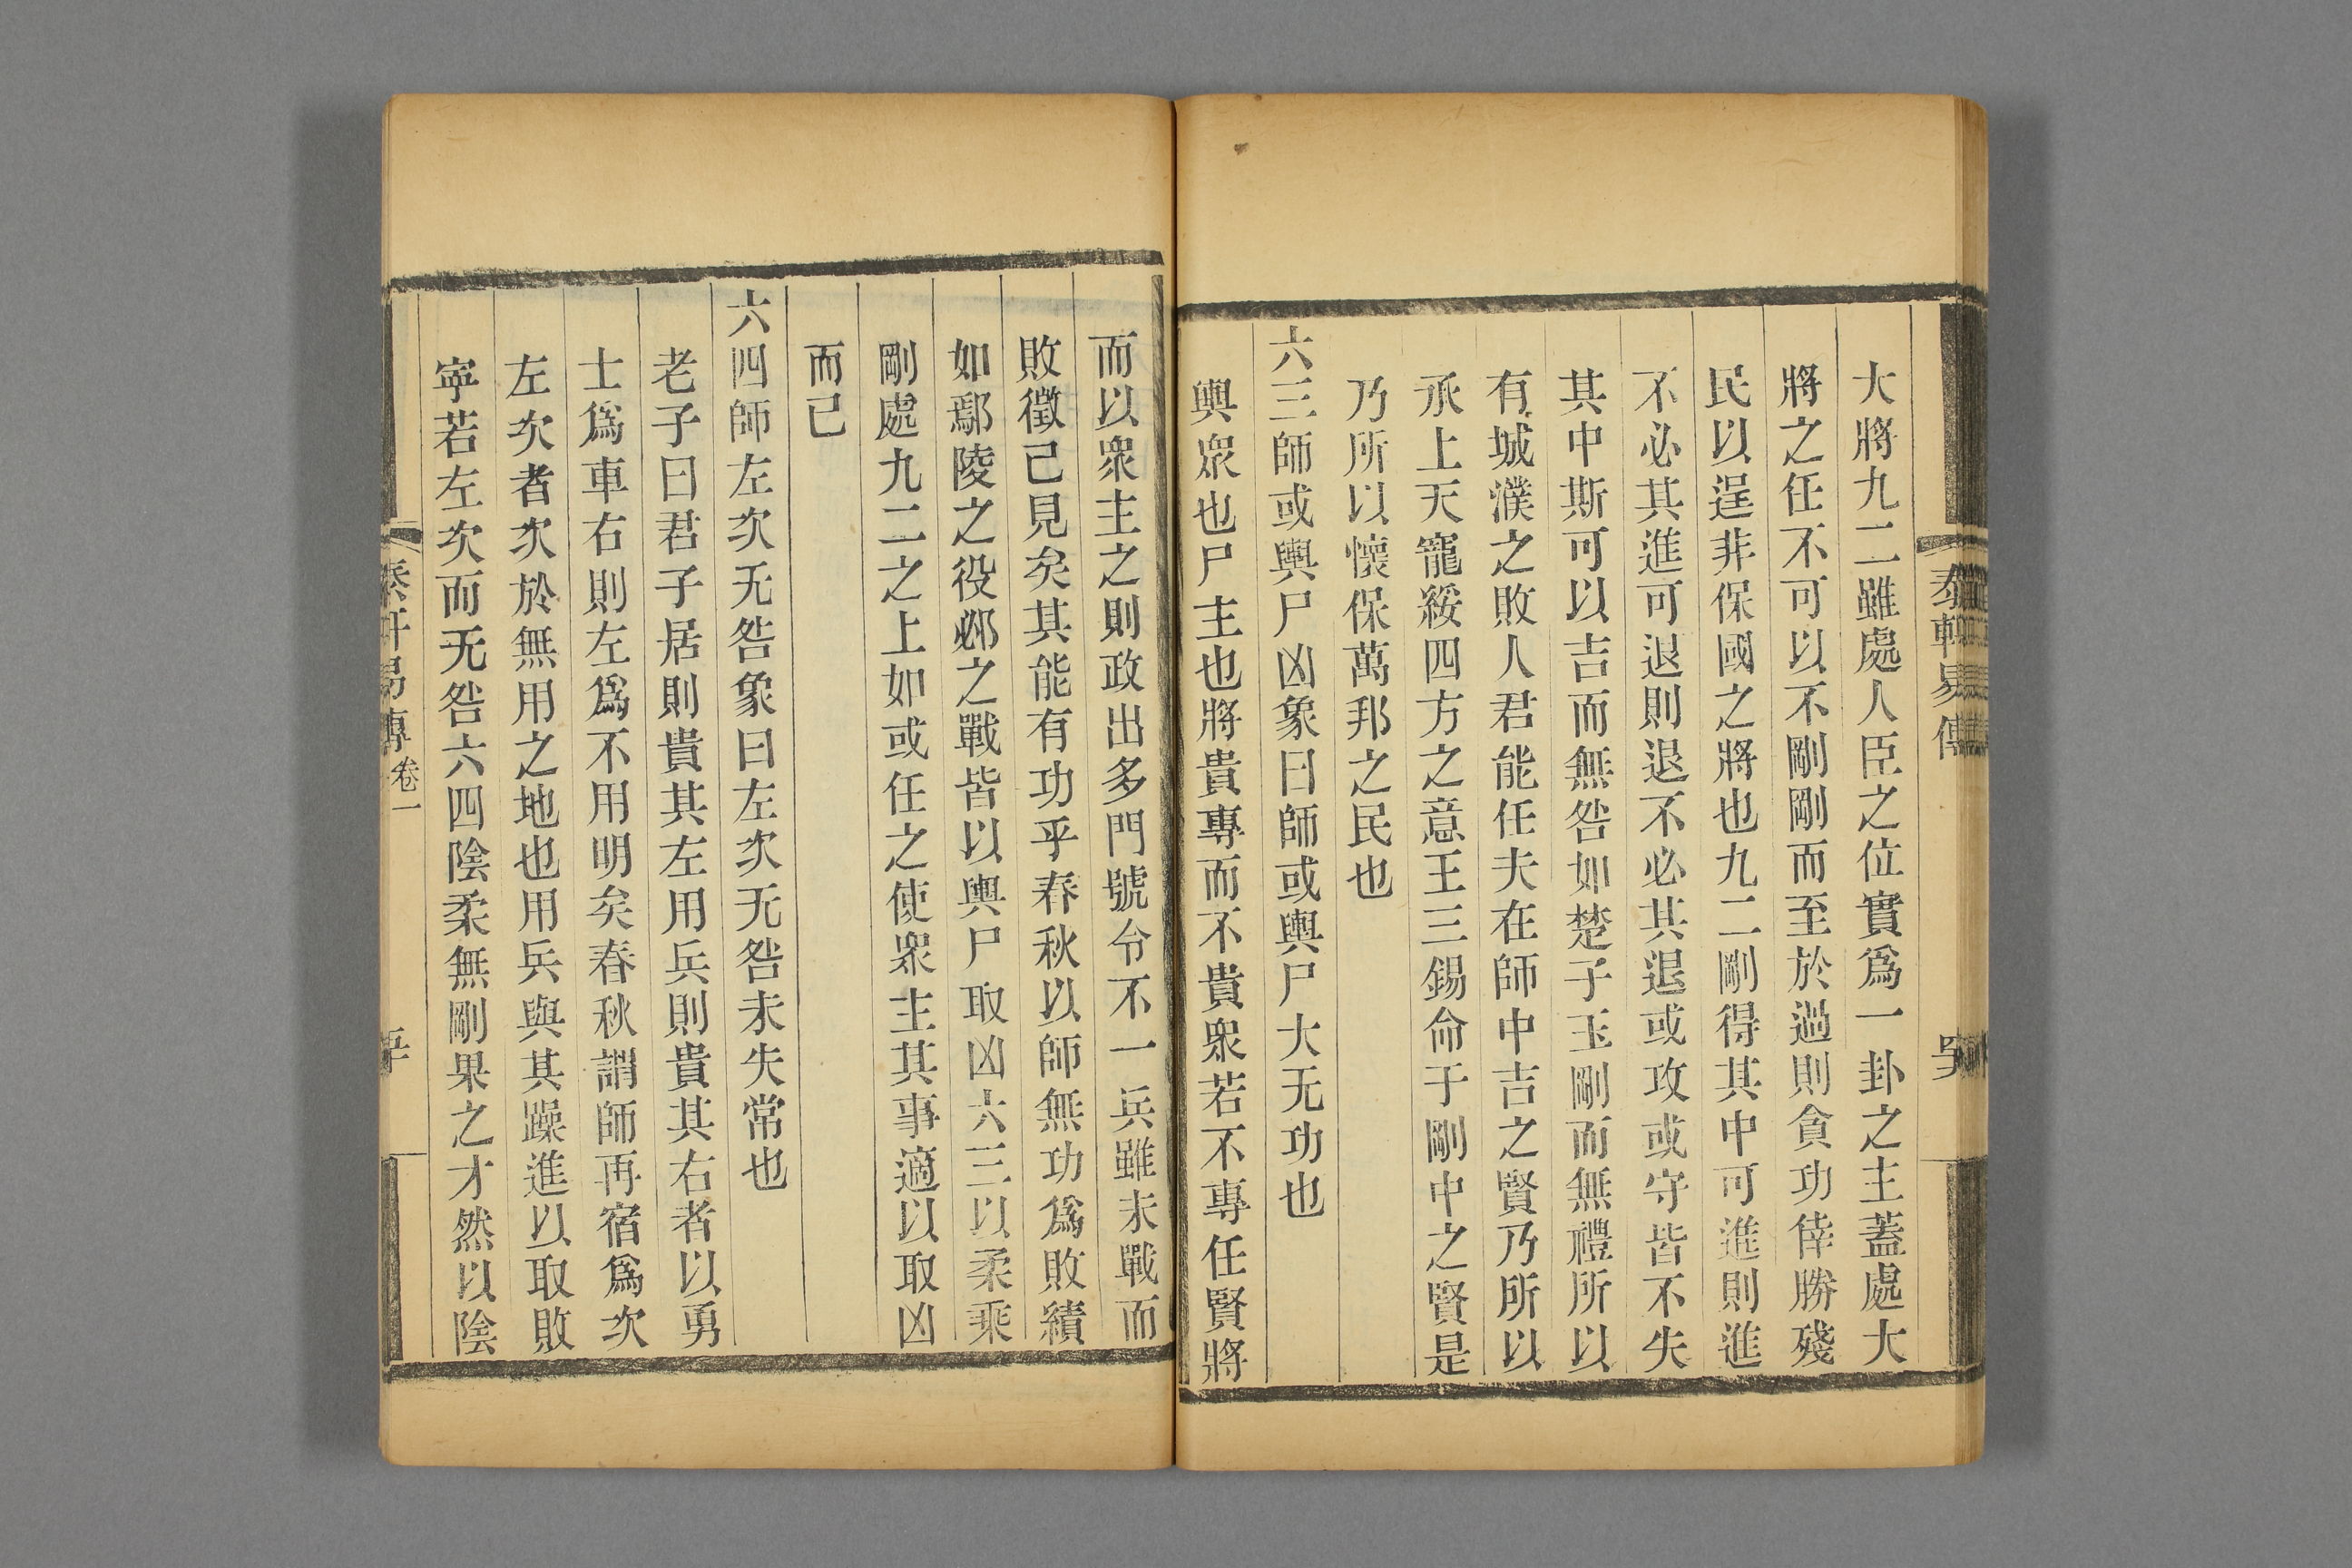 大將九二雖處人臣之位實爲一卦之主蓋處大
將之任不可以不剛剛而至於過則貪功倖勝殘
民以逞非保國之將也九二剛得其中可進則進
不必其進可退則退不必其退或攻或守皆不失
其中斯可以吉而無咎如楚子玉剛而無禮所以
有城濮之敗人君能任夫在師中吉之賢乃所以
承上天寵綏四方之意王三錫命于剛中之賢是
乃所以懷保萬邦之民也
六三師或輿尸凶象曰師或輿尸大无功也
輿衆也尸主也將貴專而不貴衆若不專任賢將
而以衆主之則政出多門號令不一兵雖未戰而
敗徵已見矣其能有功乎春秋以師無功爲敗績
如鄢陵之役邲之戰皆以輿尸取凶六三以柔乘
剛處九二之上如或任之使衆主其事適以取凶
而已
六四師左次无咎象曰左次无咎未失常也
老子曰君子居則貴其左用兵則貴其右者以勇
士爲車右則左爲不用明矣春秋謂師再宿爲次
左次者次於無用之地也用兵與其躁進以取敗
寧若左次而无咎六四陰柔無剛果之才然以陰
易傳卷一